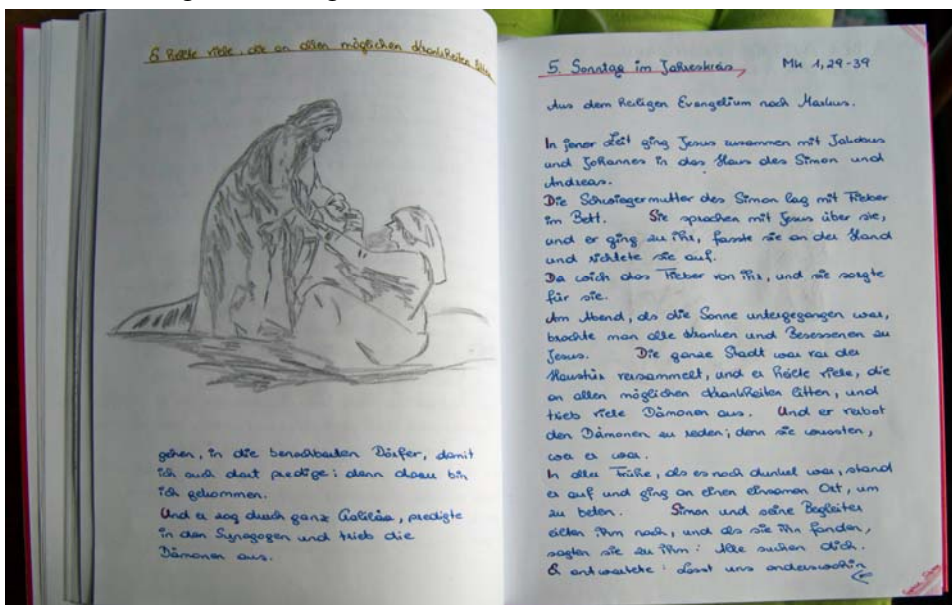 Er heilte viele, die an allen möglichen Krankheiten litten
gehen, in die benachbarten Dörfer, damit
ich auch dort predige; denn dazu bin
ich gekommen.
Und er zog durch ganz Galiläa, predigte
in den Synagogen und trieb die
Dämonen aus.
5. Sonntag im Jahreskreis, Mk 1,29-39
Aus dem heiligen Evangelium nach Markus.
In jener Zeit ging Jesus zusammen mit Jakobus
und Johannes in das Haus des Simon und
Andreas.
Die Schwiegermutter des Simon lag mit Fieber
im Bett. Sie sprachen mit Jesus über sie,
und er ging zu ihr, fasste sie an der Hand
und richtete sie auf.
Da wich das Fieber von ihr, und sie sorgte
für sie.
Am Abend, als die Sonne untergegangen war,
brachte man alle Kranken und Besessenen zu
Jesus. Die ganze Stadt war vor der
Haustür versammelt, und er heilte viele, die
an allen möglichen Krankheiten litten, und
trieb viele Dämonen aus. Und er verbot
den Dämonen zu reden; denn sie wussten,
wer er war.
In aller Frühe, als es noch dunkel war, stand
er auf und ging an einen einsamen Ort, um
zu beten. Simon und seine Begleiter
eilten ihm nach, und als sie ihn fanden,
sagten sie zu ihm: Alle suchen dich.
Er antwortete: Lasst uns anderswohin